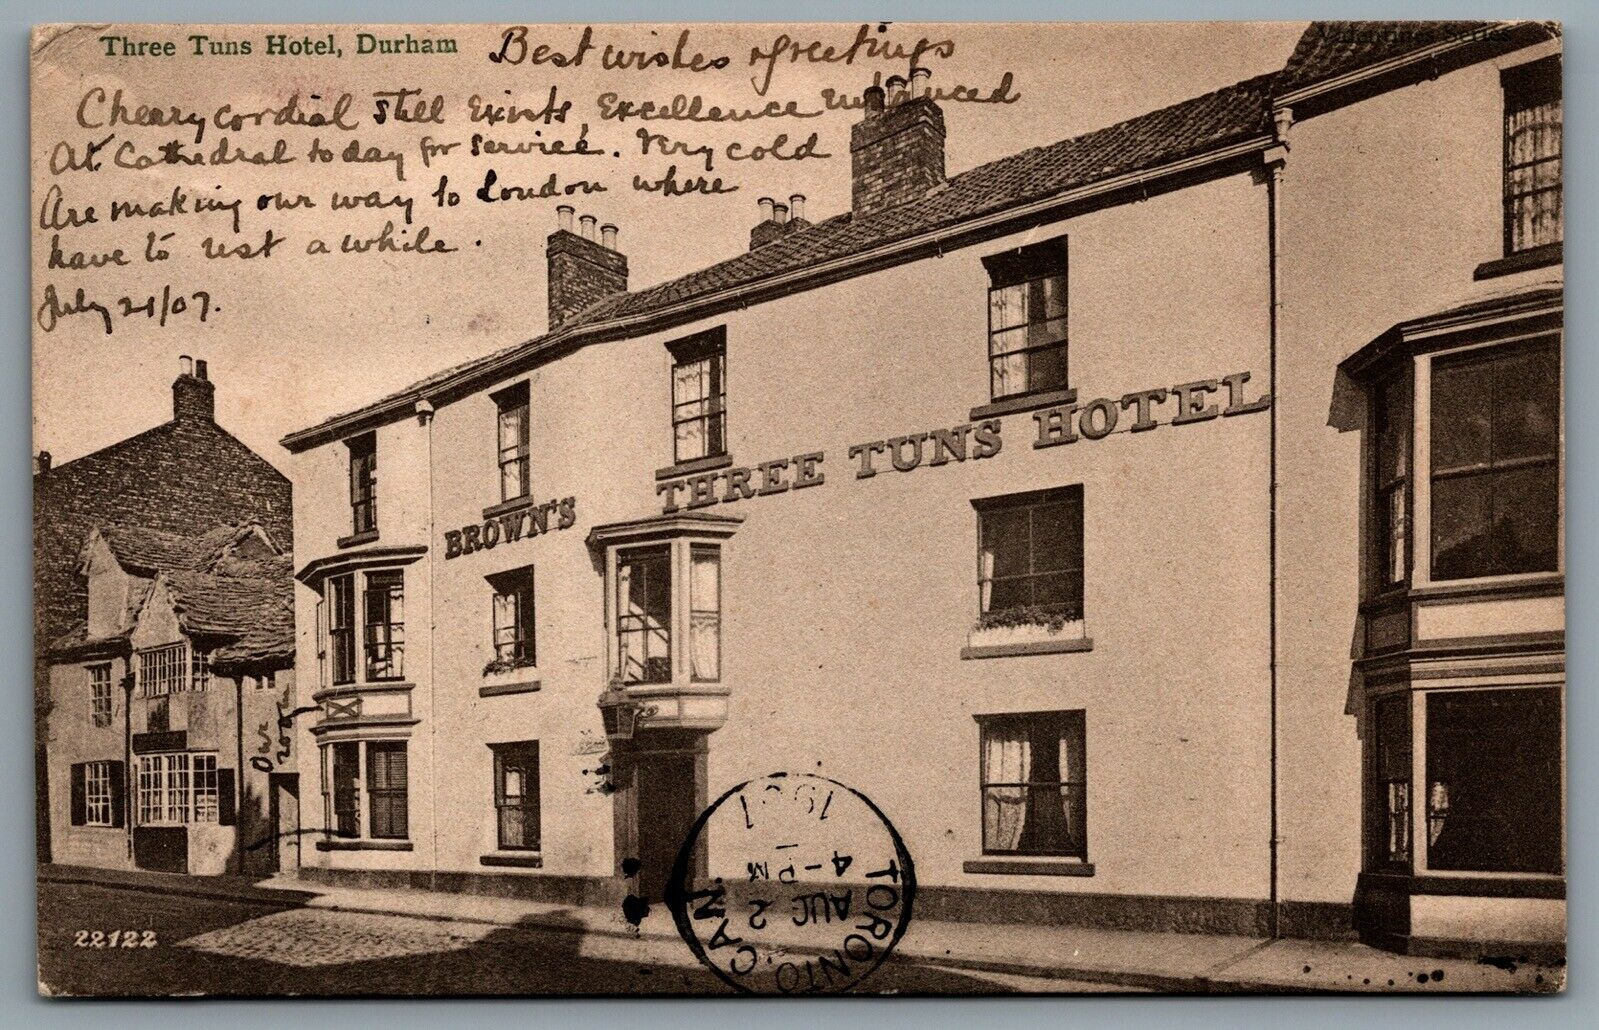 Three Tuns Hotel, Durham
Valentines Series
Best wishes & greetings
Cherry cordial still exists, Excellence enhanced
At Cathedral to day for service. Very cold
Are making our way to London where
have to rest a while.
July 21/07.
BROWN'S THREE TUNS HOTEL
Our
room
TORONTO, CAN.
4-PM
AUG 2
1907
22122